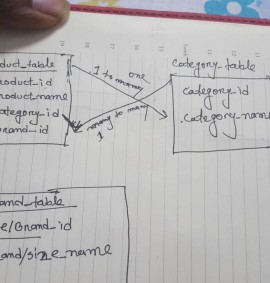 duct_table
roduct_id
roduct_name
ategory_id
rand_id
1 to many one
many to many
1
category_table
category_id
category_name
rand_table
e/Brand_id
and/size_name